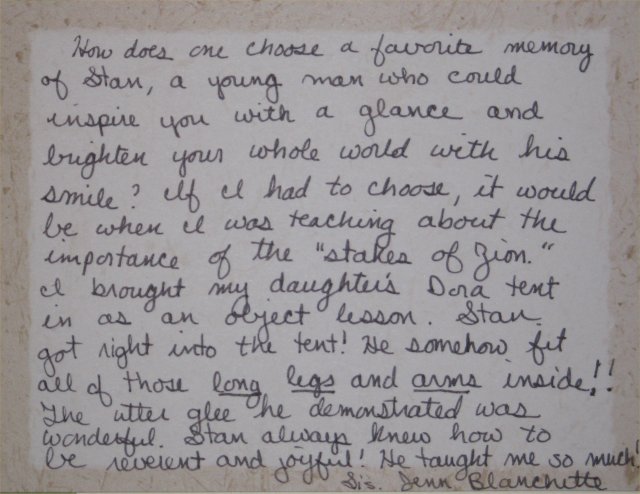 How does one choose a favorite memory
of Stan, a young man who could
inspire you with a glance and
brighten your whole world with his
smile? If I had to choose, it would
be when I was teaching about the
importance of the "stakes of Zion."
I brought my daughter's Dora tent
in as an object lesson. Stan
got right into the tent! He somehow fit
all of those long legs and arms inside!!
The utter glee he demonstrated was
wonderful. Stan always knew how to
be reverent and joyful! He taught me so much!
Sis. Jenn Blanchette